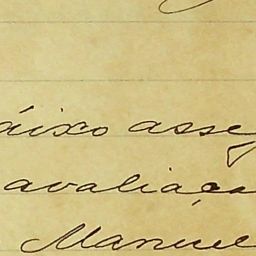 áixo asse
avaliaça
Manuel